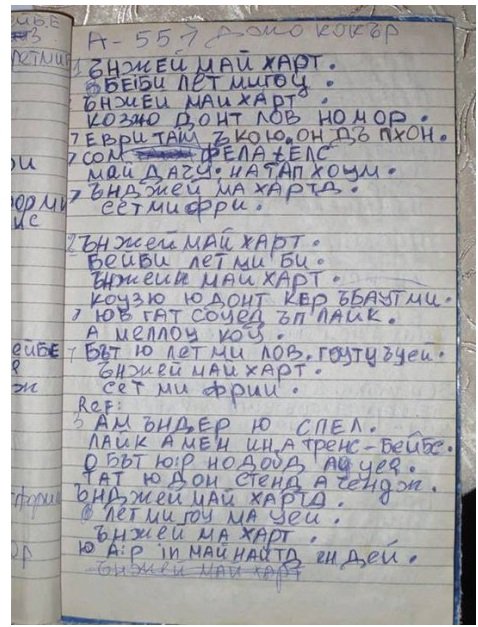 А-557 ДЖО КОКЪР
1 ЪНЖЕЙ МАЙ ХАРТ.
БЕЙБИ ЛЕТ МИ ГОЦ.
ЪНЖЕЙ МАЙ ХАРТ.
КОЗЮ ДОНТ ЛОВ НО МОР.
7 ЕВРИ ТАЙМ Ъ КОЮ. ОН ДЪ ПХОН.
7 СОМ ФЕЛА ЕЛС
МАЙ ДАЧУ. НАТАП ХОУМ.
7 ЪНДЖЕЙ МА ХАРТД.
СЕТ МИ ФРИ.
2 ЪНЖЕЙ МАЙ ХАРТ.
БЕЙБИ ЛЕТ МИ БИ.
ЪНЖЕЙН МАЙ ХАРТ.
КОУЗЮ Ю ДОНТ КЕР ЪБАУТ МИ.
7 ЮВ ГАТ СОУЕД ЪП ЛАИК.
А МЕЛЛОЦ КОЦ.
7 БЪТ Ю ЛЕТ МИ ЛОВ. ГОУТУЪУЕЙ.
ЪНЖЕЙ МАЙ ХАРТ.
СЕТ МИ ФРИИ.
Ref:
3 АМ ЪНДЕР Ю СПЕЛ.
ЛАЙК А МЕН ИН А ТРЕНС-БЕЙБЕ.
О БЪТ Ю:Р
ТАТ Ю ДОН СТЕНД А ЧЕНДЖ.
ЪНДЖЕЙ МАЙ ХАРТД.
ЛЕТ МИ ГОЦ МА УЕЙ.
ЪНЖЕЙ МА ХАРТ.
Ю А:Р IN МАЙ НАЙТД ЕН ДЕЙ.
ЪНЖЕЙ МАЙ ХАРТ